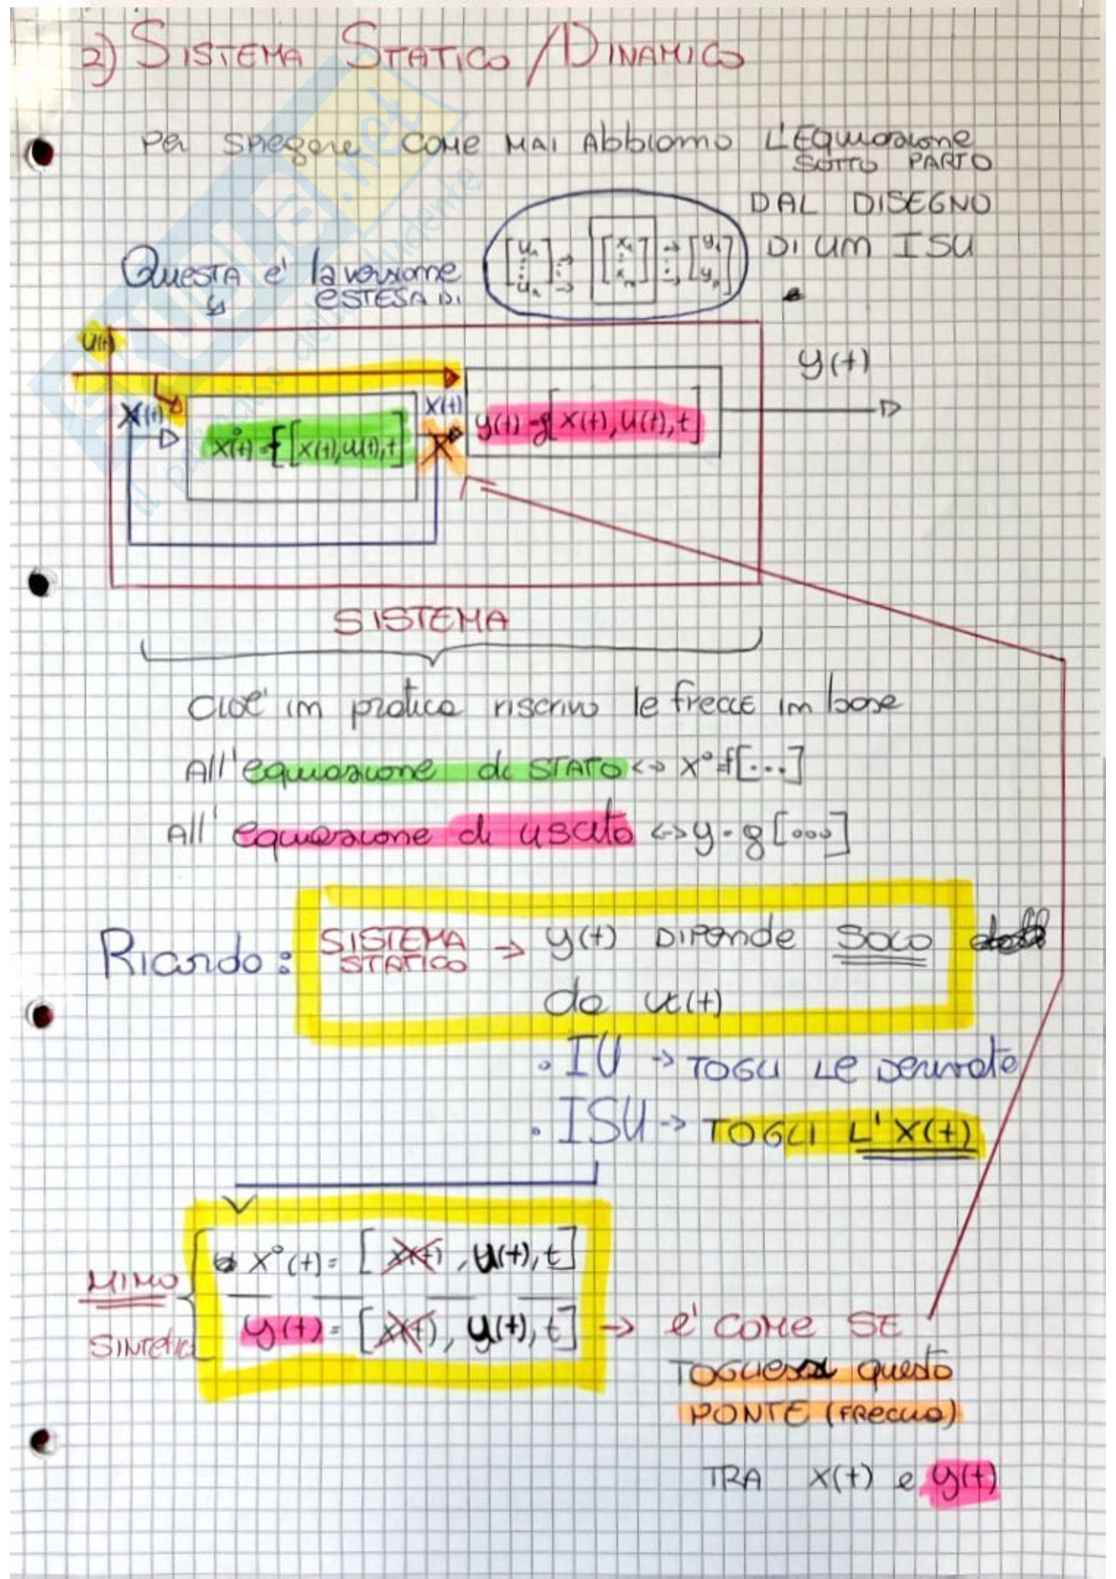 2) SISTEMA STATICO / DINAMICO
Per spiegare COME MAI Abbiamo L'Equazione
SOTTO PARTO
DAL DISEGNO
DI UM ISU
QuesTA e' la versione
ESTESA DI
[u₁ ⋮ uₙ] → [x₁ ⋮ xₙ] → [y₁ ⋮ yₚ]
u(t)
y(t)
X(t)
X(t)
x°(t)=f[x(t),u(t),t]
y(t)=g[x(t),u(t),t]
SISTEMA
CIOE' im pratica riscrivo le frecce im base
All'equazione di STATO <-> x°=f[...]
All' equazione di uscita <-> y=g[...]
Ricordo: SISTEMA STATICO → y(t) DIPende SOLO
da u(t)
. IU → TOGLI Le Derivate
. ISU → TOGLI L'X(t)
MIMO
SINTETICO
x°(t)= [x(t), u(t), t]
y(t) = [x(t), u(t), t] → e' COME SE
TOGLIESSI questo
PONTE (FRECCIA)
TRA X(t) e y(t)
SKUOLA.net
il paradiso dello studente